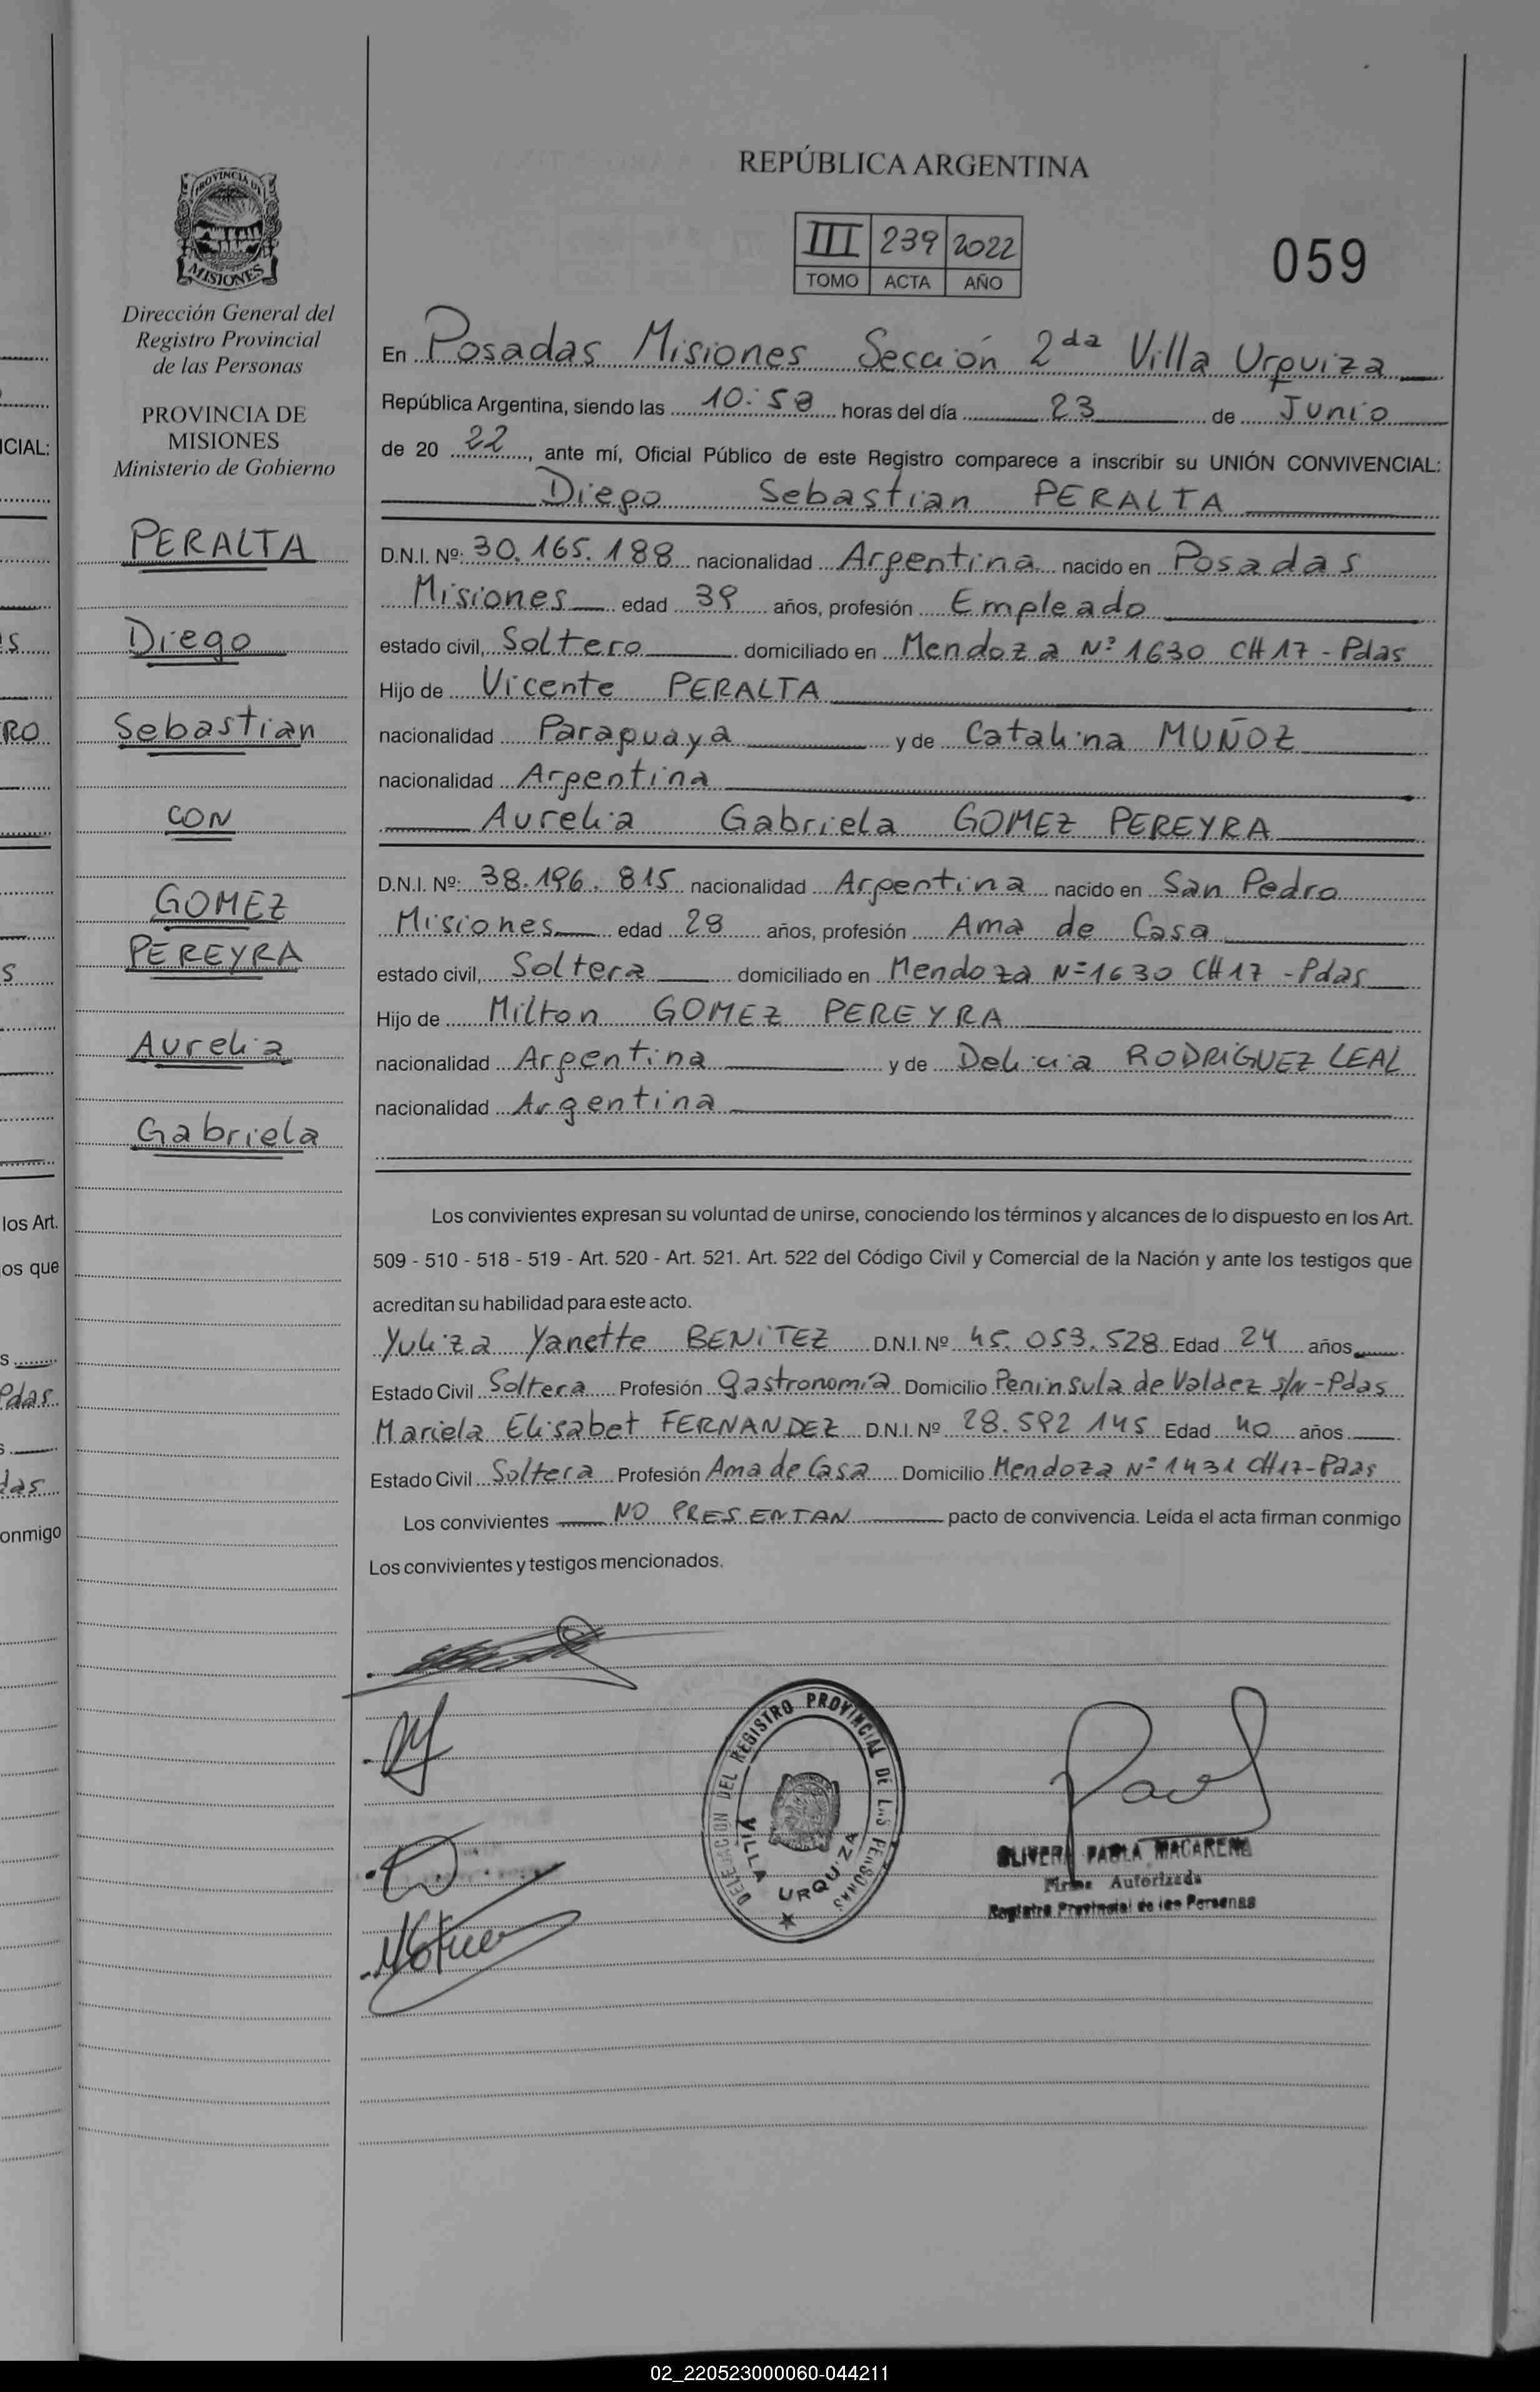 REPÚBLICA ARGENTINA
III 239 2022
TOMO ACTA AÑO
059
PROVINCIA DE
MISIONES
Dirección General del
Registro Provincial
de las Personas
PROVINCIA DE
MISIONES
Ministerio de Gobierno
PERALTA
Diego
Sebastian
CON
GOMEZ
PEREYRA
Aurelia
Gabriela
En Posadas Misiones Sección 2da Villa Urquiza
República Argentina, siendo las 10:58 horas del día 23 de Junio
de 20 22, ante mí, Oficial Público de este Registro comparece a inscribir su UNIÓN CONVIVENCIAL:
Diego Sebastian PERALTA
D.N.I. Nº: 30.165.188 nacionalidad Argentina nacido en Posadas
Misiones edad 39 años, profesión Empleado
estado civil, Soltero domiciliado en Mendoza Nº 1630 CH 17 - Pdas
Hijo de Vicente PERALTA
nacionalidad Paraguaya y de Catalina MUÑOZ
nacionalidad Argentina
Aurelia Gabriela GOMEZ PEREYRA
D.N.I. Nº: 38.196.815 nacionalidad Argentina nacido en San Pedro
Misiones edad 28 años, profesión Ama de Casa
estado civil, Soltera domiciliado en Mendoza Nº 1630 CH 17 - Pdas
Hijo de Milton GOMEZ PEREYRA
nacionalidad Argentina y de Delicia RODRIGUEZ LEAL
nacionalidad Argentina
Los convivientes expresan su voluntad de unirse, conociendo los términos y alcances de lo dispuesto en los Art.
509 - 510 - 518 - 519 - Art. 520 - Art. 521. Art. 522 del Código Civil y Comercial de la Nación y ante los testigos que
acreditan su habilidad para este acto.
Yuliza Yanette BENITEZ D.N.I. Nº 45.053.528 Edad 24 años
Estado Civil Soltera Profesión Gastronomía Domicilio Peninsula de Valdez s/N - Pdas
Mariela Elisabet FERNANDEZ D.N.I. Nº 28.592 145 Edad 40 años
Estado Civil Soltera Profesión Ama de Casa Domicilio Mendoza Nº 1431 CH 17 - Pdas
Los convivientes NO PRESENTAN pacto de convivencia. Leída el acta firman conmigo
Los convivientes y testigos mencionados.
DELEGACION DEL REGISTRO PROVINCIAL DE LAS PERSONAS
VILLA URQUIZA
OLIVERA PAOLA MACARENA
Firma Autorizada
Registro Provincial de las Personas
CIAL:
RO
los Art.
os que
Pdas
das
onmigo
02_220523000060-044211